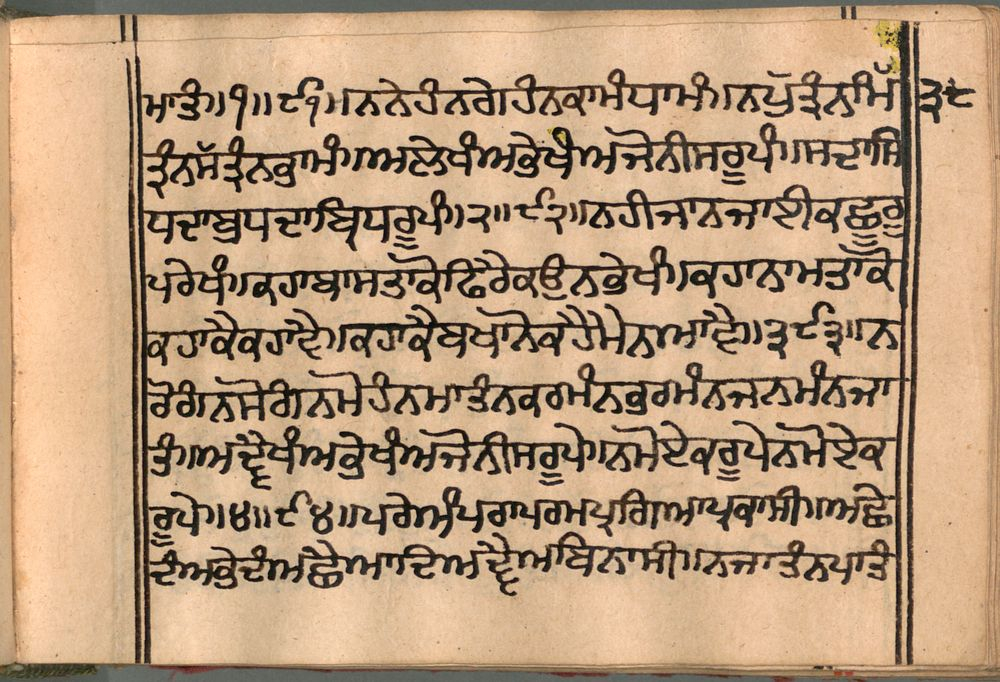 ਮਾਤੰ॥੧॥੯੧॥ਨਨੇਹੰਨਗੇਹੰਨਕਾਮੰਧਾਮੰ॥ਨਪੁੱਤ੍ਰੰਨਮਿੱ ੩੮
ਤ੍ਰੰਨਸੱਤ੍ਰੰਨਭਾਮੰ॥ਅਲੇਖੰਅਭੇਖੰਅਜੋਨੀਸਰੂਪੰ॥ਸਦਾਸਿ
ਧਦਾਬੁਧਦਾਬ੍ਰਿਧਰੂਪੰ॥੨॥੯੨॥ਨਹੀਜਾਨਜਾਈਕਛੂਰੂ
ਪਰੇਖੰ॥ਕਹਾਬਾਸਤਾਕੋਫਿਰੈਕਉਨਭੇਖੰ॥ਕਹਾਨਾਮਤਾਕੋ
ਕਹਾਕੈਕਹਾਵੈ॥ਕਹਾਕੈਬਖਾਨੋਕਹੈਮੈਨਆਵੈ॥੩੯੩॥ਨ
ਰੋਗੰਨਸੋਗੰਨਮੋਹੰਨਮਾਤੰਨਕਰਮੰਨਭਰਮੰਨਜਨਮੰਨਜਾ
ਤੰ॥ਅਦ੍ਵੈਖੰਅਭੇਖੰਅਜੋਨੀਸਰੂਪੇ॥ਨਮੋਏਕਰੂਪੇਨਮੋਏਕ
ਰੂਪੇ॥੪॥੯੪॥ਪਰੇਅੰਪਰਾਪਰਮਪ੍ਰਗਿਆਪ੍ਰਕਾਸੀ॥ਅਛੇ
ਦੰਅਭੇਦੰਅਛੈਆਦਿਅਦ੍ਵੈਅਬਿਨਾਸੀ॥ਨਜਾਤੰਨਪਾਤੰ